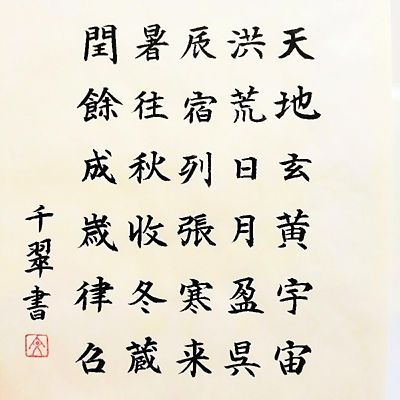 天地玄黄宇宙
洪荒日月盈呉
辰宿列張寒来
暑往秋收冬蔵
閏餘成歳律召
千翠書